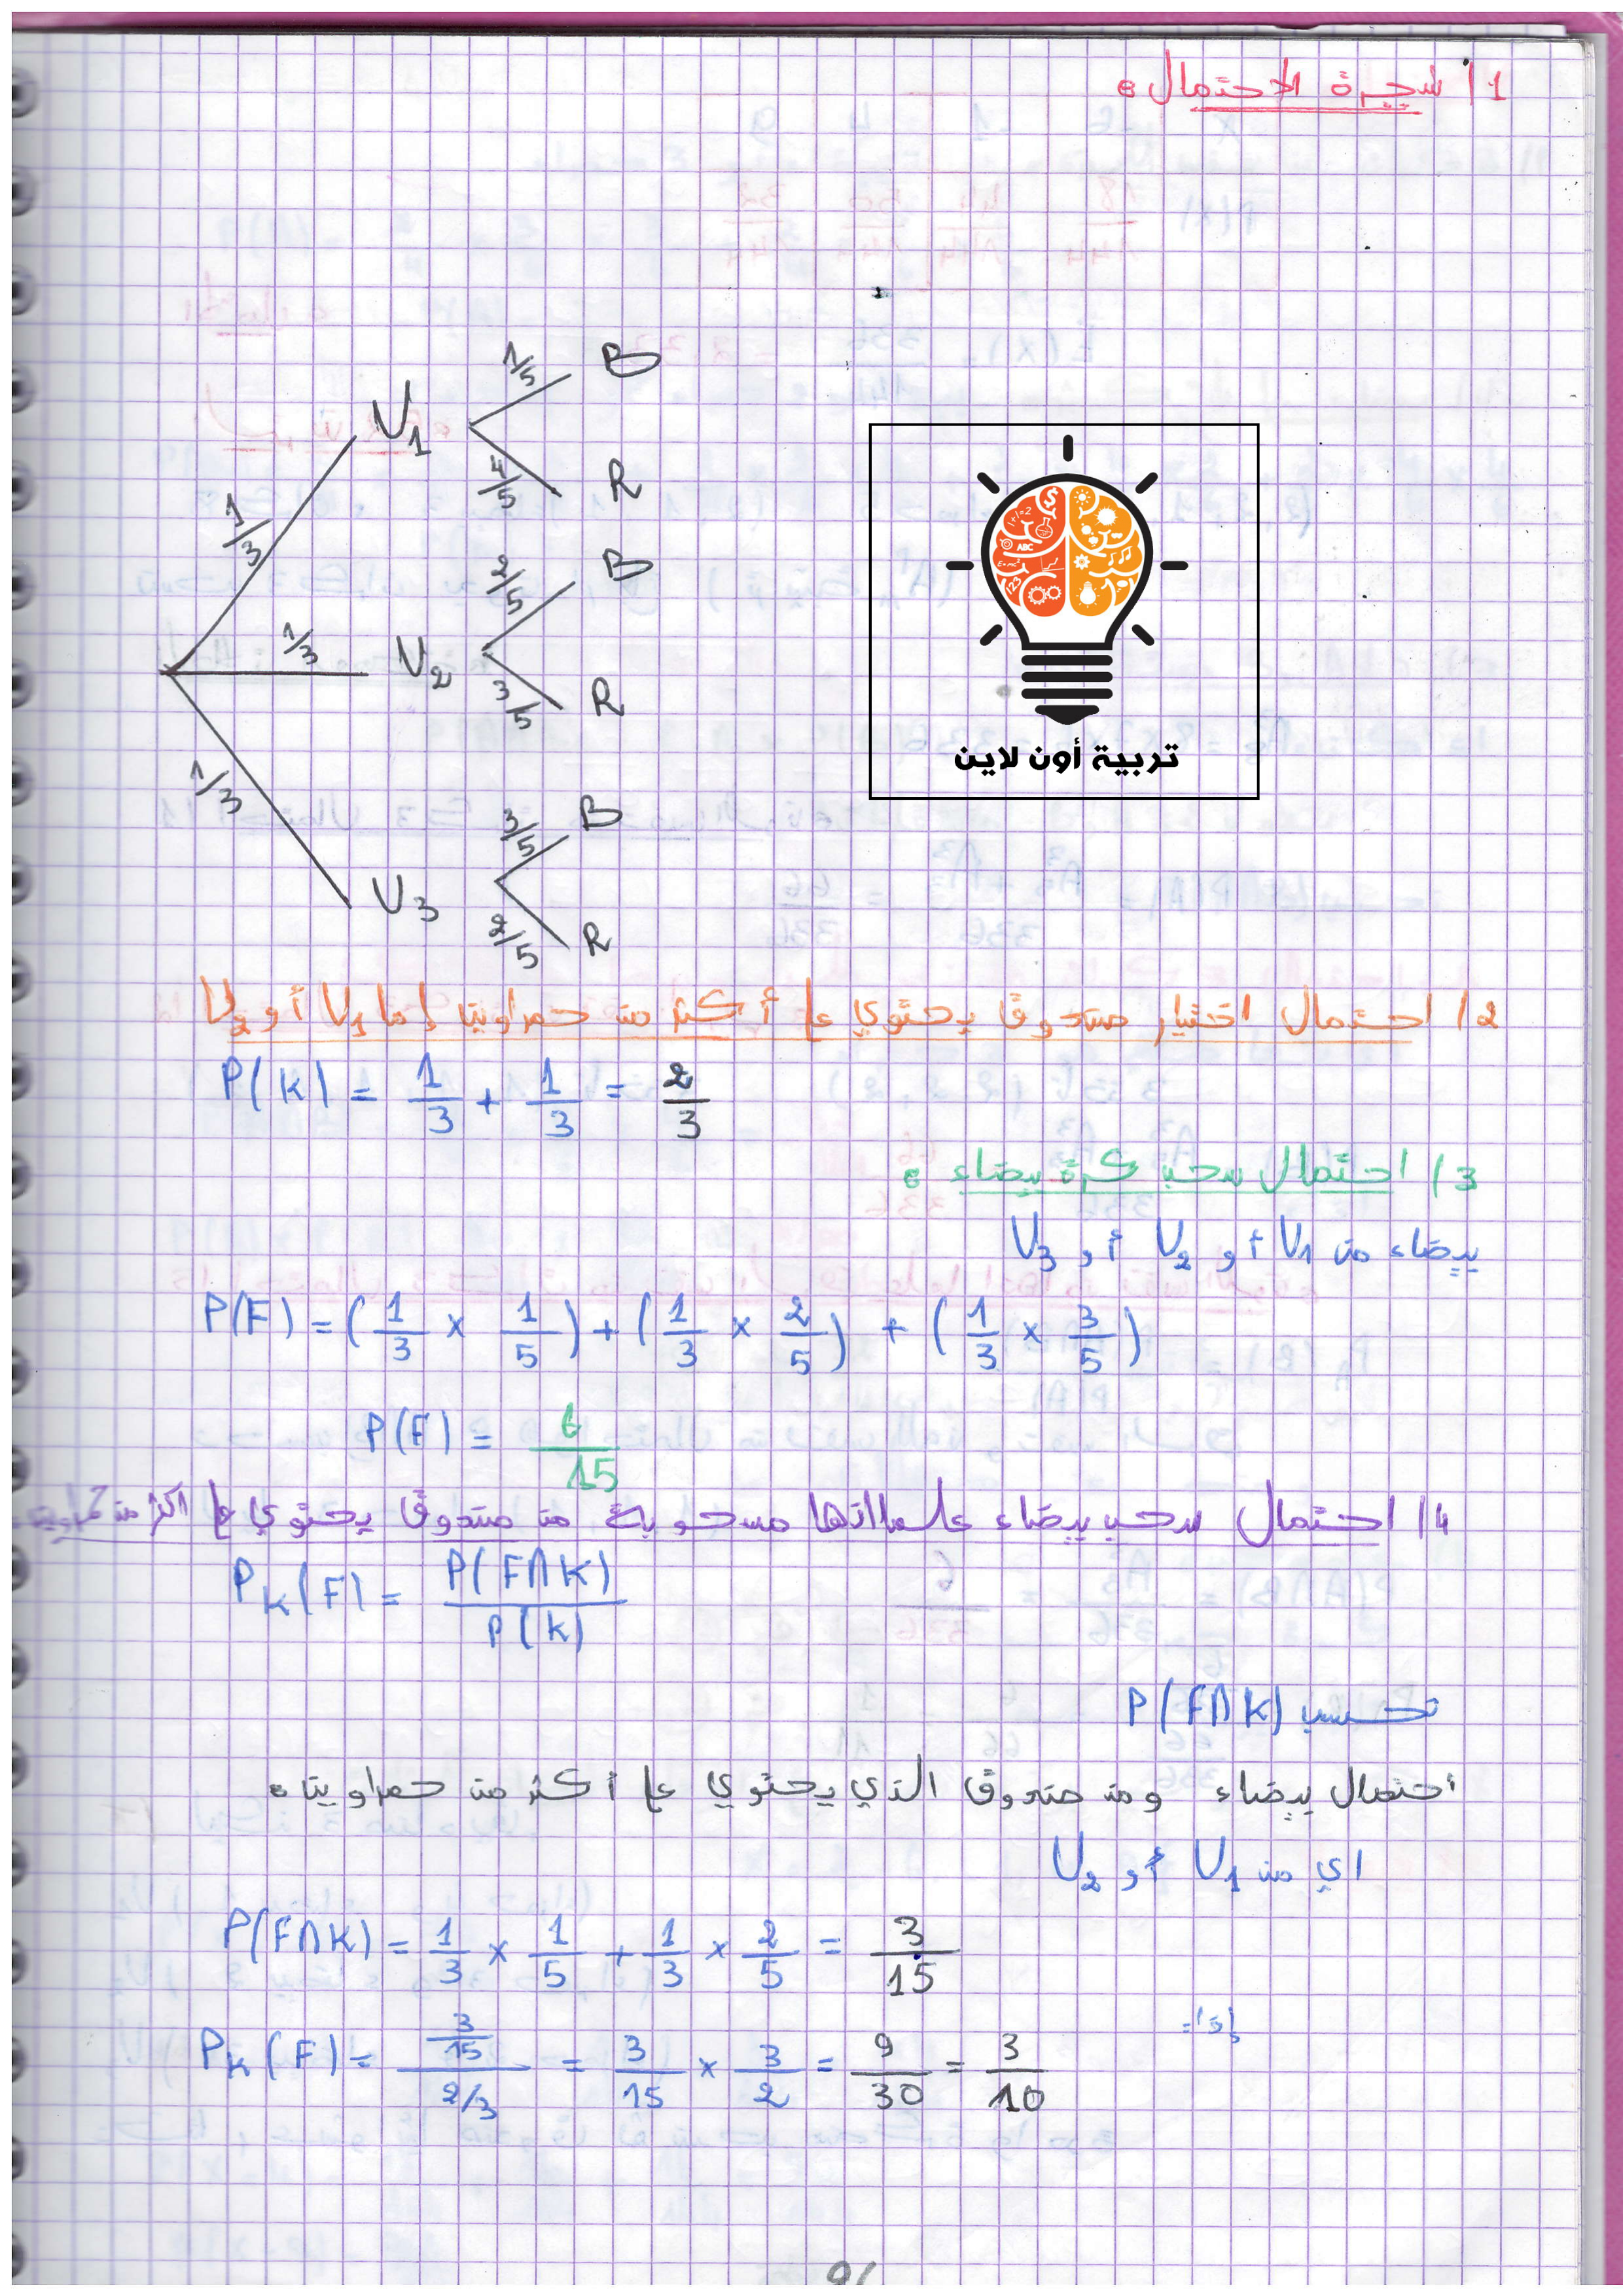 1/ شجرة الاحتمال:
1/5 B
U1
4/5 R
1/3
2/5 B
1/3 U2
3/5 R
1/3
3/5 B
U3
2/5 R
تربية أون لاين
2/ احتمال اختيار صندوق يحتوي على أكثر من حمراوين إما U1 أو U2
P(K) = 1/3 + 1/3 = 2/3
3/ احتمال سحب كرة بيضاء:
بيضاء من U1 أو U2 أو U3
P(F) = (1/3 × 1/5) + (1/3 × 2/5) + (1/3 × 3/5)
P(F) = 6/15
4/ احتمال سحب بيضاء علما انها مسحوبة من صندوق يحتوي على اكثر من حمراوين
P_K(F) = P(F∩K)/P(K)
نحسب P(F∩K)
احتمال بيضاء ومن صندوق الذي يحتوي على أكثر من حمراوين:
اي من U1 أو U2
P(F∩K) = 1/3 × 1/5 + 1/3 × 2/5 = 3/15
إذا:
P_K(F) = (3/15)/(2/3) = 3/15 × 3/2 = 9/30 = 3/10